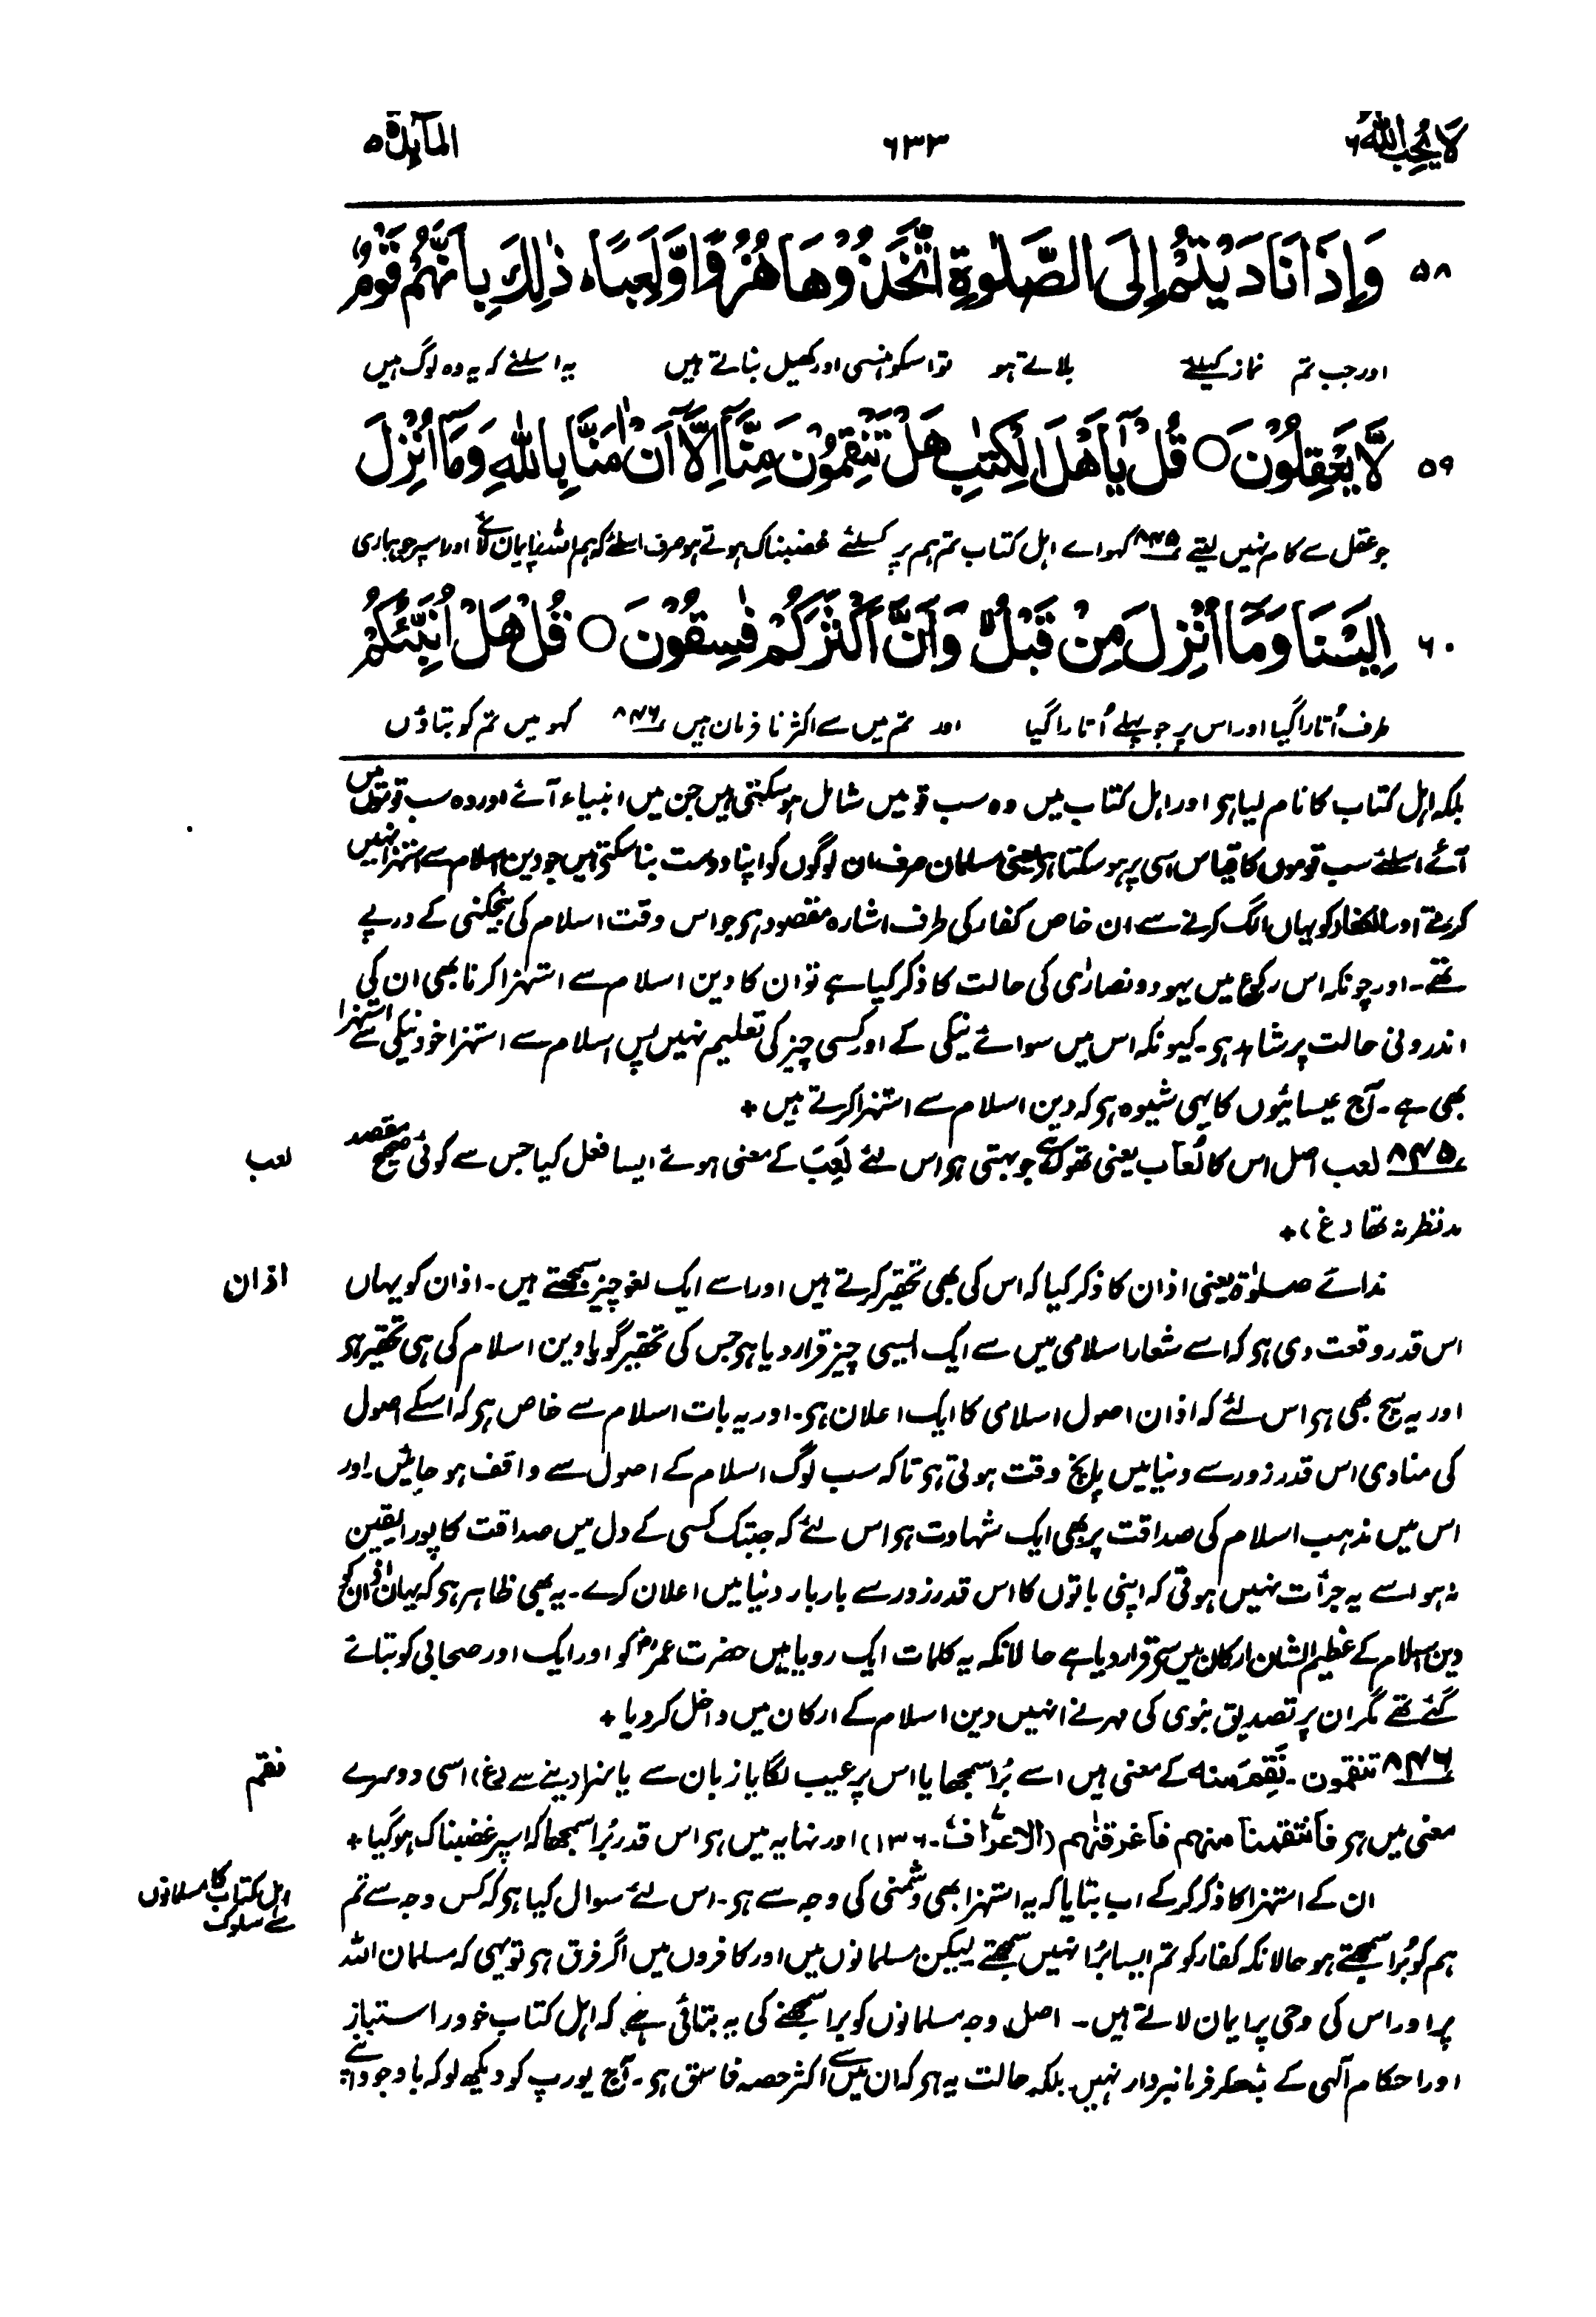 لَا يُحِبُّ اللهُ ۶
۶۳۳
المآئدة ۵
۵۸ وَاِذَا نَادَيْتُمْ اِلَى الصَّلٰوةِ اتَّخَذُوْهَا هُزُوًا وَّلَعِبًا ؕ ذٰلِكَ بِاَنَّهُمْ قَوْمٌ
اور جب تم نماز کیلئے بلاتے ہو تو اسکو ہنسی اور کھیل بناتے ہیں یہ اسلئے کہ یہ وہ لوگ ہیں
۵۹ لَّا يَعْقِلُوْنَ ○ قُلْ يٰۤاَهْلَ الْكِتٰبِ هَلْ تَنْقِمُوْنَ مِنَّاۤ اِلَّاۤ اَنْ اٰمَنَّا بِاللّٰهِ وَمَاۤ اُنْزِلَ
جو عقل سے کام نہیں لیتے ۸۴۵ کہو اے اہل کتاب تم ہم پر کسلئے غضبناک ہوتے ہو صرف اسلئے کہ ہم اللہ پر ایمان لائے اور اسپر جو ہماری
۶۰ اِلَيْنَا وَمَاۤ اُنْزِلَ مِنْ قَبْلُ ۙ وَاَنَّ اَكْثَرَكُمْ فٰسِقُوْنَ ○ قُلْ هَلْ اُنَبِّئُكُمْ
طرف اُتارا گیا اور اس پر جو پہلے اُتارا گیا اور تم میں سے اکثر نافرمان ہیں ۸۴۶ کہو میں تم کو بتاؤں
بلکہ اہل کتاب کا نام لیا ہو اور اہل کتاب میں وہ سب قومیں شامل ہو سکتی ہیں جن میں انبیاء آئے اور وہ سب قوموں میں
آئے اسلئے سب قوموں کا قیاس اسی پر ہو سکتا ہو یعنی مسلمان صرف ان لوگوں کو اپنا دوست بنا سکتے ہیں جو دین اسلام سے استہزا نہیں
کرتے اور الکفار کو یہاں الگ کرنے سے ان خاص کفار کی طرف اشارہ مقصود ہو جو اس وقت اسلام کی بیخکنی کے درپے
تھے۔ اور چونکہ اس رکوع میں یہود و نصاریٰ کی حالت کا ذکر کیا ہے تو ان کا دین اسلام سے استہزا کرنا بھی ان کی
اندرونی حالت پر شاہد ہو۔ کیونکہ اس میں سوائے نیکی کے اور کسی چیز کی تعلیم نہیں پس اسلام سے استہزا خود نیکی سے استہزا
بھی ہے۔ آج عیسائیوں کا یہی شیوہ ہو کہ دین اسلام سے استہزا کرتے ہیں +
۸۴۵ لعب اصل اس کا لُعَاب یعنی تھوک ہے جو بہتی ہو اس لئے لَعِبَ کے معنی ہوئے ایسا فعل کیا جس سے کوئی صحیح مقصد
لعب
مدنظر نہ تھا (غ) +
ندائے صلوٰۃ یعنی اذان کا ذکر کیا کہ اس کی بھی تحقیر کرتے ہیں اور اسے ایک لغو چیز سمجھتے ہیں۔ اذان کو یہاں
اذان
اس قدر وقعت دی ہو کہ اسے شعار اسلامی میں سے ایک ایسی چیز قرار دیا ہو جس کی تحقیر گویا دین اسلام کی ہی تحقیر ہو
اور یہ سچ بھی ہو اس لئے کہ اذان اصول اسلامی کا ایک اعلان ہو۔ اور یہ بات اسلام سے خاص ہو کہ اسکے اصول
کی منادی اس قدر زور سے دنیا میں پانچ وقت ہوتی ہو تاکہ سب لوگ اسلام کے اصول سے واقف ہو جائیں۔ اور
اس میں مذہب اسلام کی صداقت پر بھی ایک شہادت ہو اس لئے کہ جبتک کسی کے دل میں صداقت کا پورا یقین
نہ ہو اسے یہ جرأت نہیں ہوتی کہ اپنی باتوں کا اس قدر زور سے بار بار دنیا میں اعلان کرے۔ یہ بھی ظاہر ہو کہ یہاں اذان کو
دین اسلام کے عظیم الشان ارکان میں سے قرار دیا ہے حالانکہ یہ کلمات ایک رویا میں حضرت عمرؓ کو اور ایک اور صحابی کو بتائے
گئے تھے مگر ان پر تصدیق نبوی کی مہر نے انہیں دین اسلام کے ارکان میں داخل کر دیا +
۸۴۶ تنقمون۔ نَقِمَ منه کے معنی ہیں اسے بُرا سمجھا یا اس پر عیب لگایا زبان سے یا سزا دینے سے (غ) اسی دوسرے
نقم
معنی میں ہو فانتقمنا منهم فاغرقنٰهم (الاعراف۔ ۱۳۶) اور نہایہ میں ہو اس قدر بُرا سمجھا کہ اسپر غضبناک ہو گیا +
ان کے استہزا کا ذکر کر کے اب بتایا کہ یہ استہزا بھی دشمنی کی وجہ سے ہو۔ اس لئے سوال کیا ہو کہ کس وجہ سے تم
اہل کتاب کا مسلمانوں
سے سلوک
ہم کو بُرا سمجھتے ہو حالانکہ کفار کو تم ایسا بُرا نہیں سمجھتے لیکن مسلمانوں میں اور کافروں میں اگر فرق ہو تو یہی کہ مسلمان اللہ
پر اور اس کی وحی پر ایمان لاتے ہیں۔ اصل وجہ مسلمانوں کو برا سمجھنے کی یہ بتائی ہے کہ اہل کتاب خود راستباز
اور احکام الٰہی کے فرمانبردار نہیں بلکہ حالت یہ ہو کہ ان میں سے اکثر حصہ فاسق ہو۔ آج یورپ کو دیکھ لو کہ باوجود